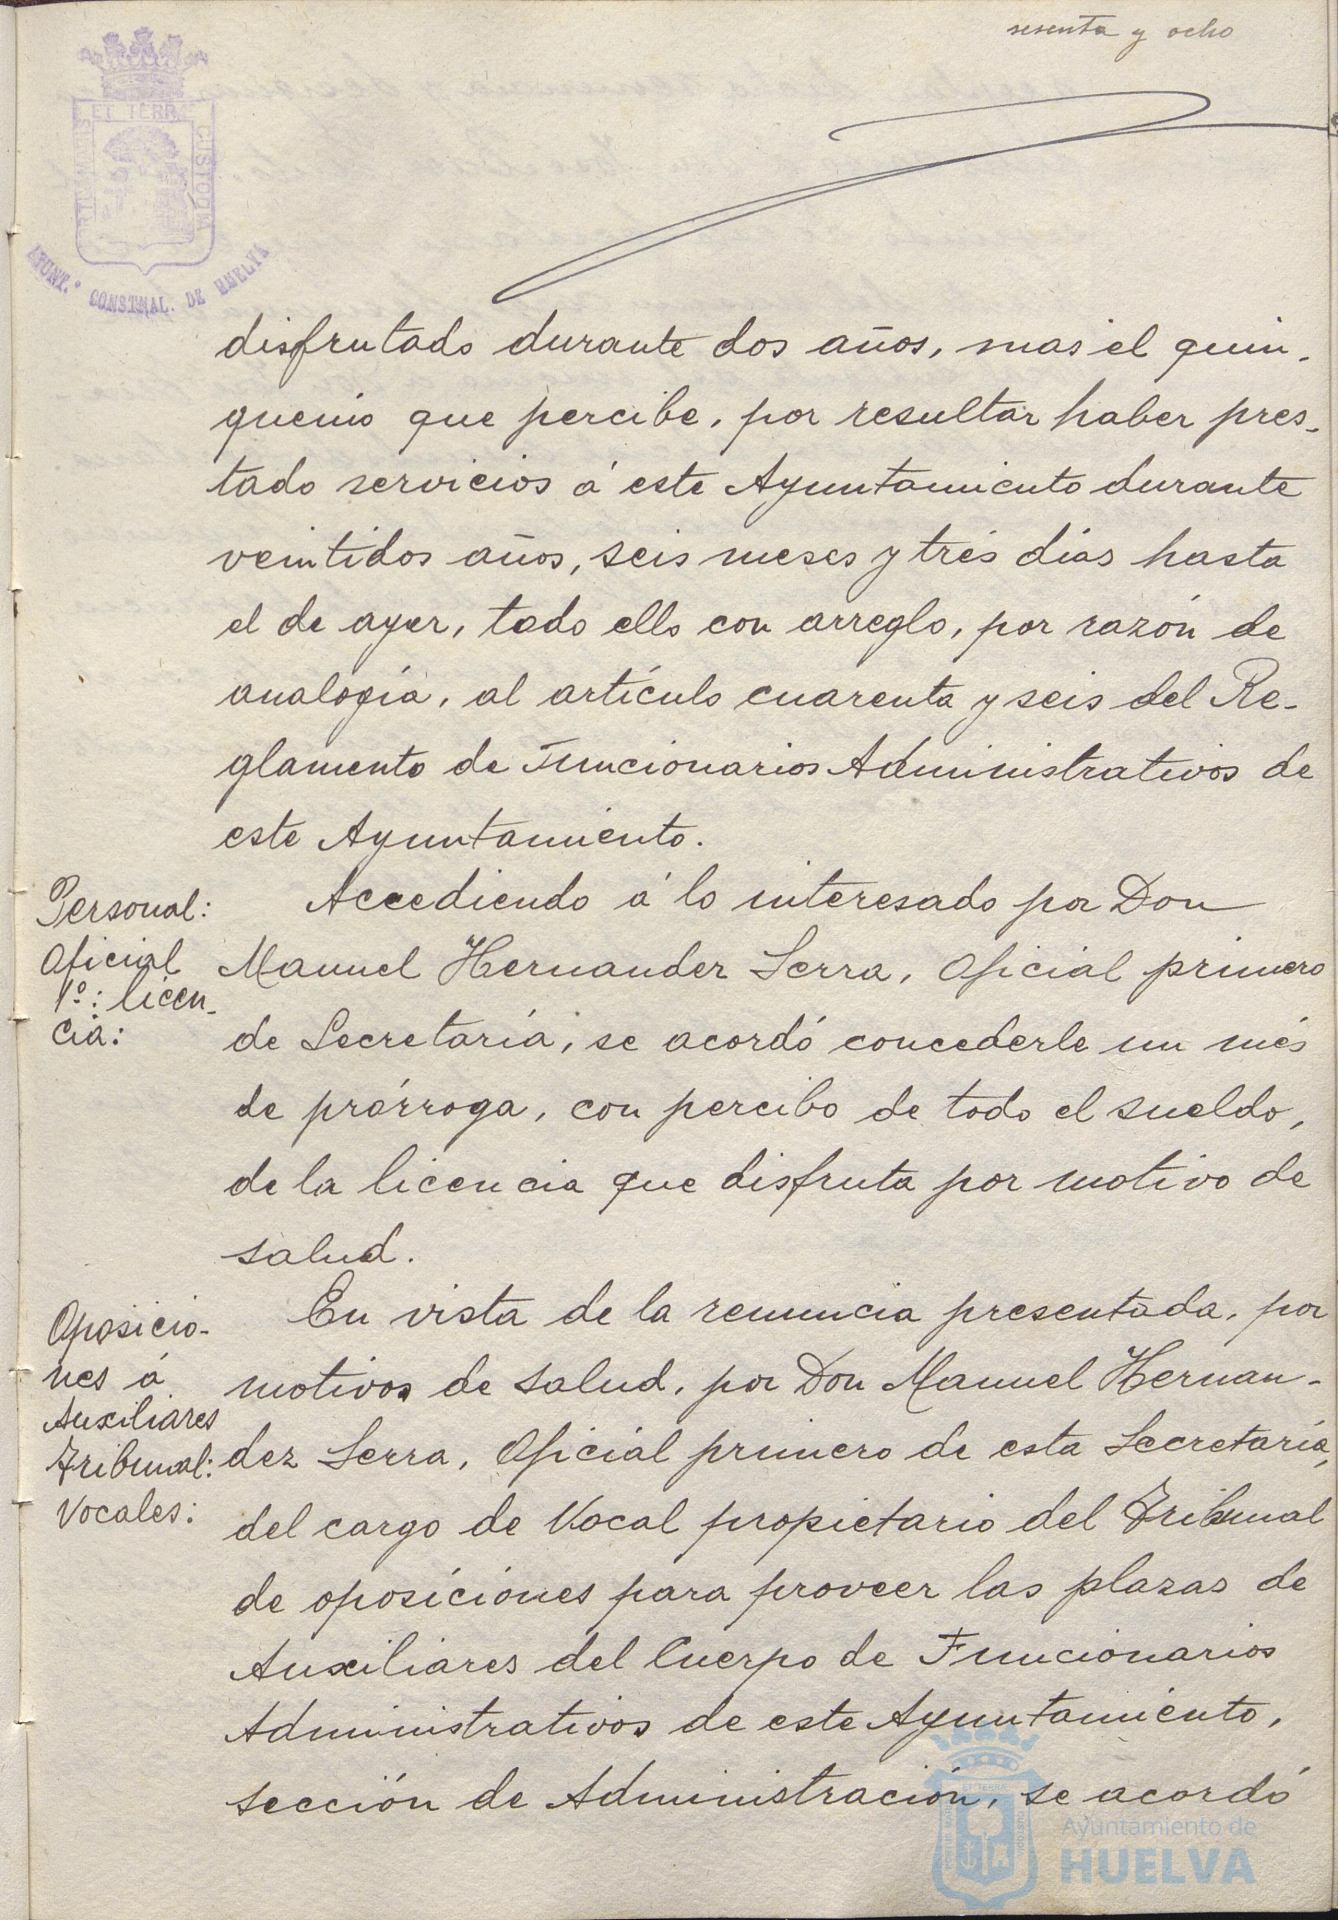 sesenta y ocho
ET TERRÆ CUSTODIA
AYUNT.º CONSTNAL. DE HUELVA
disfrutado durante dos años, mas el quin-
quenio que percibe, por resultar haber pres-
tado servicios á este Ayuntamiento durante
veintidos años, seis meses y trés días hasta
el de ayer, todo ello con arreglo, por razón de
analogía, al artículo cuarenta y seis del Re-
glamento de Funcionarios Administrativos de
este Ayuntamiento.
Personal:
Oficial
1º: licen-
cia:
Accediendo á lo interesado por Don
Manuel Hernander Serra, Oficial primero
de Secretaría, se acordó concederle un més
de prórroga, con percibo de todo el sueldo,
de la licencia que disfruta por motivo de
salud.
Oposicio-
nes á
Auxiliares
Tribunal:
Vocales:
En vista de la renuncia presentada, por
motivos de salud, por Don Manuel Hernan-
dez Serra, Oficial primero de esta Secretaría,
del cargo de Vocal propietario del Tribunal
de oposiciones para proveer las plazas de
Auxiliares del Cuerpo de Funcionarios
Administrativos de este Ayuntamiento,
sección de Administración, se acordó
Ayuntamiento de
HUELVA